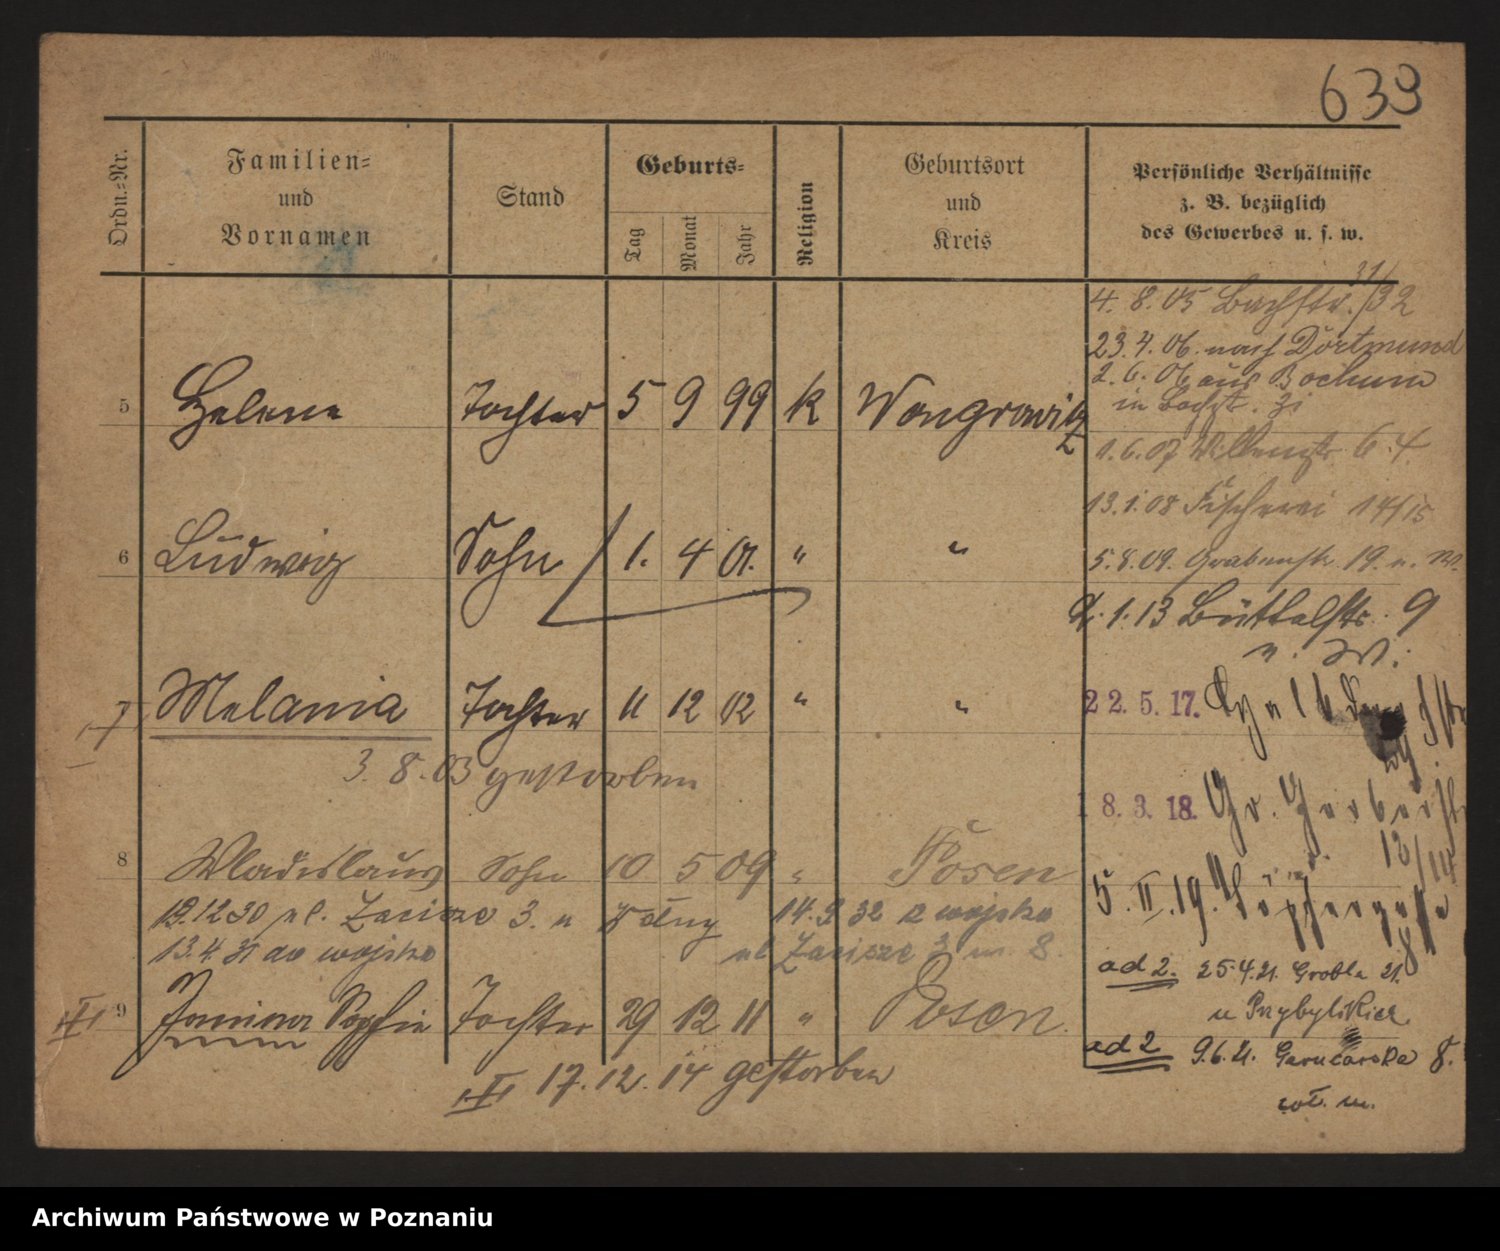 639
Ordn.-Nr.
Familien-
und
Vornamen
Stand
Geburts-
Tag
Monat
Jahr
Religion
Geburtsort
und
Kreis
Persönliche Verhältnisse
z. B. bezüglich
des Gewerbes u. s. w.
31/
4. 8. 05 Bachstr. /32
23. 4. 06. nach Dortmund
2. 6. 06 aus Bochum
5 Helene Tochter 5 9 99 k Wongrowitz
1. 6. 07 6. 4
13. 1. 08 Fischerei 14/15
6 Ludwig Sohn 1. 4 01. " "
5. 8. 09. Grabenstr. 19. u. W.
2. 1. 13 Büttelstr. 9
u. W.
7 Melania Tochter 11 12 02 " "
22. 5. 17.
3. 8. 03 gestorben
18. 3. 18. Gr. Gerberstr
12/14
8 Wladislaus Sohn 10 5 09 " Posen
5. II. 19. Töpfergasse
8
19.12 30 ul. Zacisze 3. u
14. 9 32 z wojska
13. 4. 31 do wojska
ul Zacisze 3 m. 8.
ad 2. 25. 4. 21. Grobla 21.
u Przybylskiej
9 Janina Sophie Tochter 29 12 11 " Posen.
ad 2 9. 6. 21. Garncarska 8.
17. 12. 14 gestorben
wł. m.
Archiwum Państwowe w Poznaniu